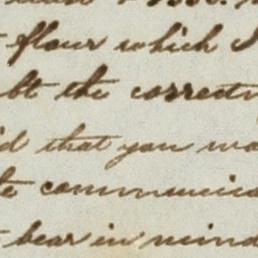 flour which I
the correctn
that you wo
communica
bear in mind